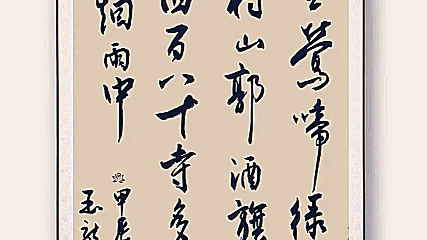 里莺啼绿
村山郭酒旗
四百八十寺多
烟雨中
甲辰